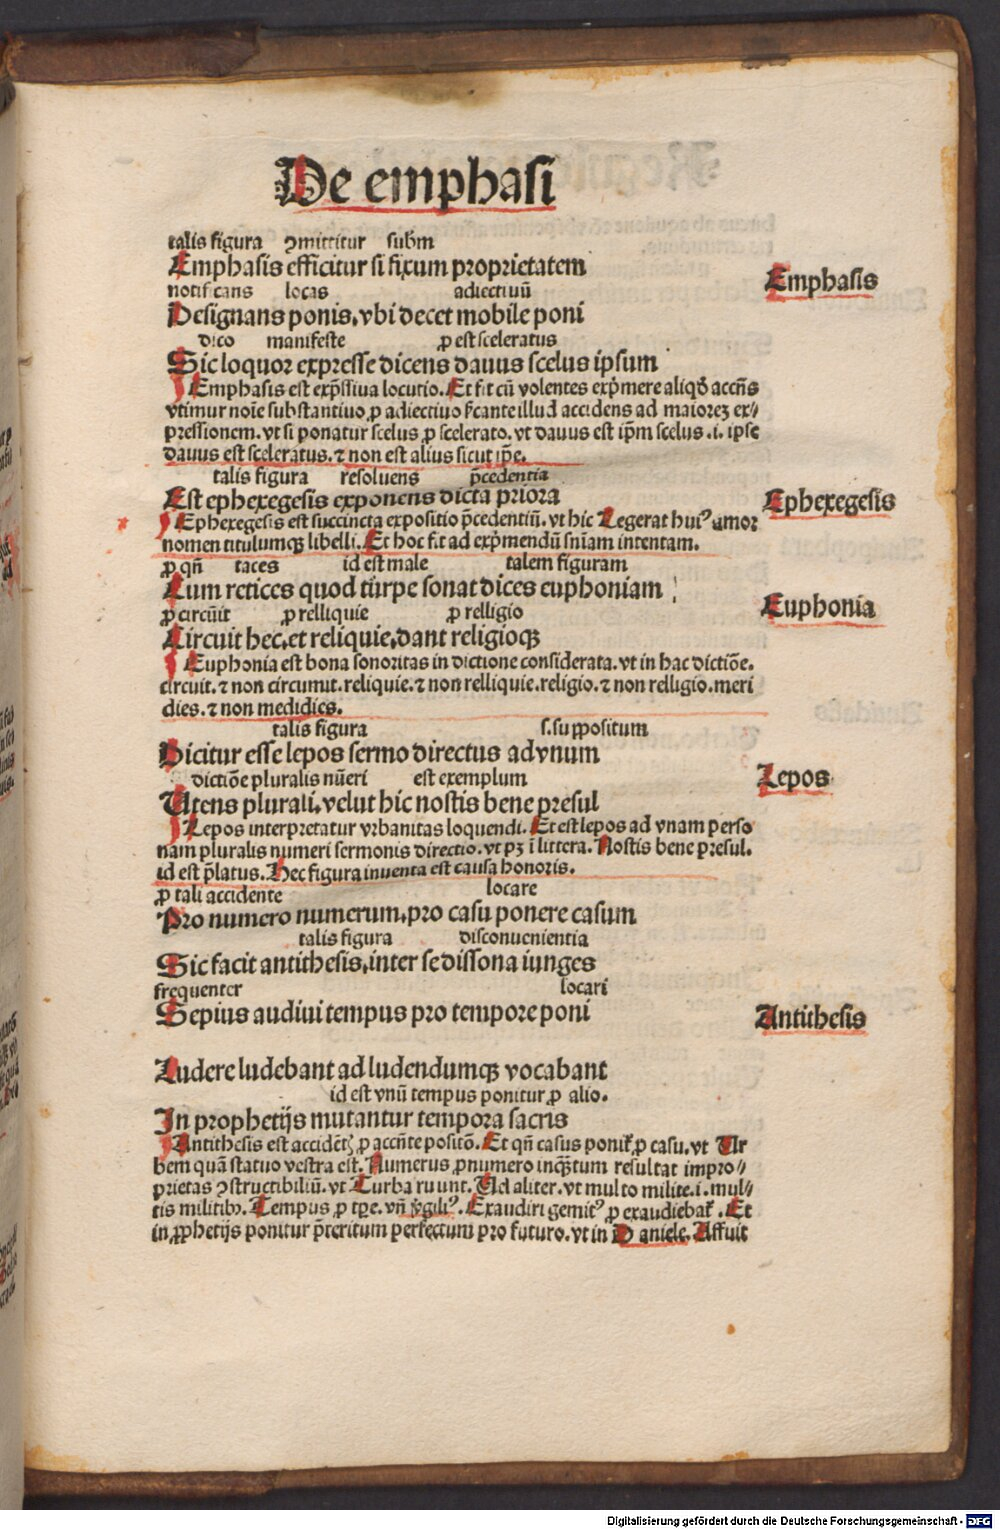 De emphasi
talis figura ꝯmittitur subm̄
Emphasis efficitur si fixum proprietatem
Emphasis
notificans locas adiectiuū
Designans ponis, vbi decet mobile poni
dico manifeste ꝓ est sceleratus
Sic loquor expresse dicens dauus scelus ipsum
Emphasis est exp̄ssiua locutio. Et fit cū volentes exp̄mere aliqd̄ accn̄s
vtimur noīe substantiuo ꝓ adiectiuo illud accidens ad maiorez ex⸗
pressionem. vt si ponatur scelus ꝓ scelerato. vt dauus est ip̄m scelus .i. ipse
dauus est sceleratus. ⁊ non est alius sicut ip̄e.
talis figura resoluens p̄cedentia
Est ephexegesis exponens dicta priora
Ephexegesis
Ephexegesis est succincta expositio p̄cedentiū. vt hic Legerat huiꝰ amor
nomen titulumqꝫ libelli. Et hoc fit ad exp̄mendū sn̄iam intentam.
ꝓ qn̄ taces id est male talem figuram
Cum retices quod turpe sonat dices euphoniam
Euphonia
ꝓ circūit ꝓ relliquie ꝓ relligio
Circuit hec, et reliquie, dant religioqꝫ
Euphonia est bona sonoritas in dictione considerata. vt in hac dictiōe.
circuit. ⁊ non circumit. reliquie. ⁊ non relliquie. religio. ⁊ non relligio. meri
dies. ⁊ non medidies.
talis figura s. suppositum
Dicitur esse lepos sermo directus ad vnum
Lepos
dictiōe pluralis nūeri est exemplum
Utens plurali, velut hic nostis bene presul
Lepos interpretatur vrbanitas loquendi. Et est lepos ad vnam perso
nam pluralis numeri sermonis directio. vt pꝫ ī littera. Nostis bene presul.
id est p̄latus. Hec figura inuenta est causa honoris.
ꝓ tali accidente locare
Pro numero numerum, pro casu ponere casum
talis figura disconuenientia
Sic facit antithesis, inter se dissona iunges
frequenter locari
Sepius audiui tempus pro tempore poni
Antithesis
Ludere ludebant ad ludendumqꝫ vocabant
id est vnū tempus ponitur ꝓ alio.
In prophetijs mutantur tempora sacris
Antithesis est ꝓ accn̄te Et qn̄ casus ꝓ casu. vt Ur
bem quā statuo vestra est. Numerus ꝓ numero inqꝫtum resultat impro⸗
prietas ꝯstructibiliū. vt Turba ruunt. Ud aliter. vt multo milite .i. mul⸗
tis militibꝰ. Tempus ꝓ vn̄ Exaudiri gemitꝰ ꝓ Et
in ꝓphetijs ponitur p̄teritum perfectum pro futuro. vt in Daniele. Affuit
Digitalisierung gefördert durch die Deutsche Forschungsgemeinschaft - DFG